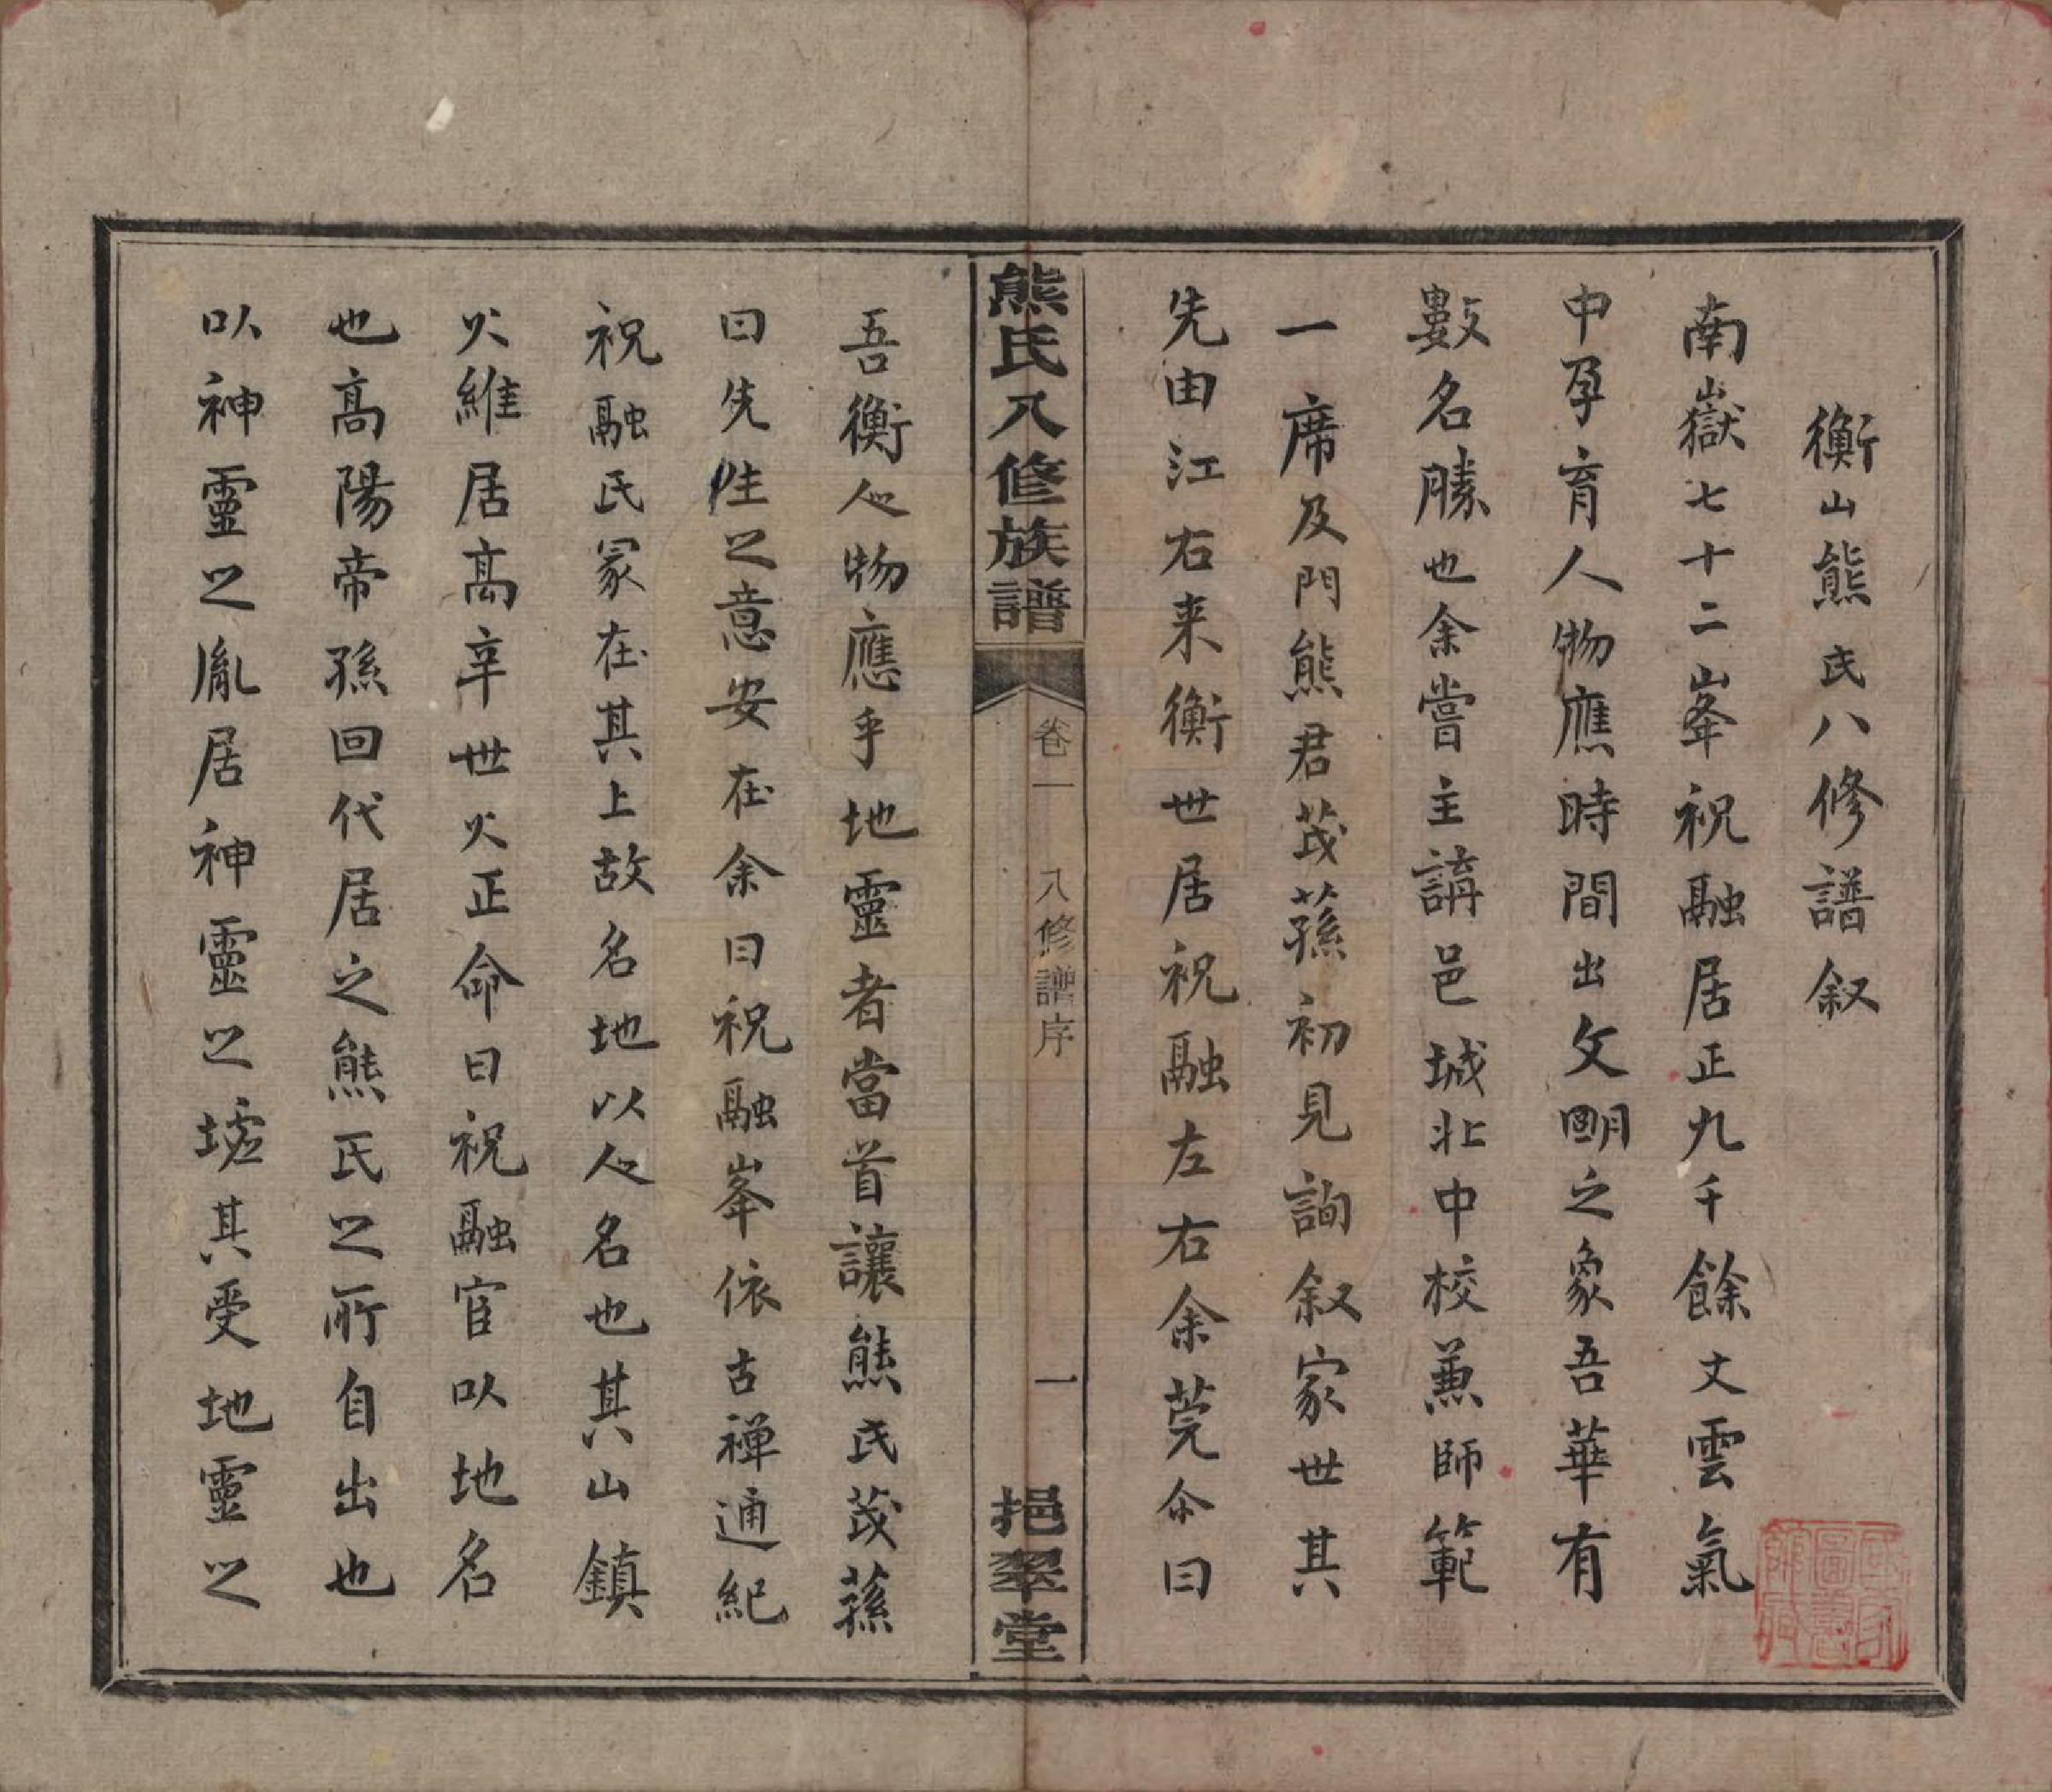 衡山熊氏八修譜叙
南嶽七十二峯祝融居正九千餘丈雲氣
中孕育人物應時間出文明之象吾華有
數名勝也余嘗主講邑城北中校蒹師範
一席及門熊君茂蓀初見詢叙家世其
先由江右来衡世居祝融左右余莞尒曰
熊氏八修族譜
卷一 八修譜序
一
挹翠堂
吾衡人物應乎地靈者當首讓熊氏茂蓀
曰先生之意安在余曰祝融峯依古禅通紀
祝融氏冢在其上故名地以人名也其山鎮
火維居高辛世火正命曰祝融官以地名
也高陽帝孫回代居之熊氏之所自出也
以神靈之胤居神靈之墟其受地靈之
國家圖書館藏